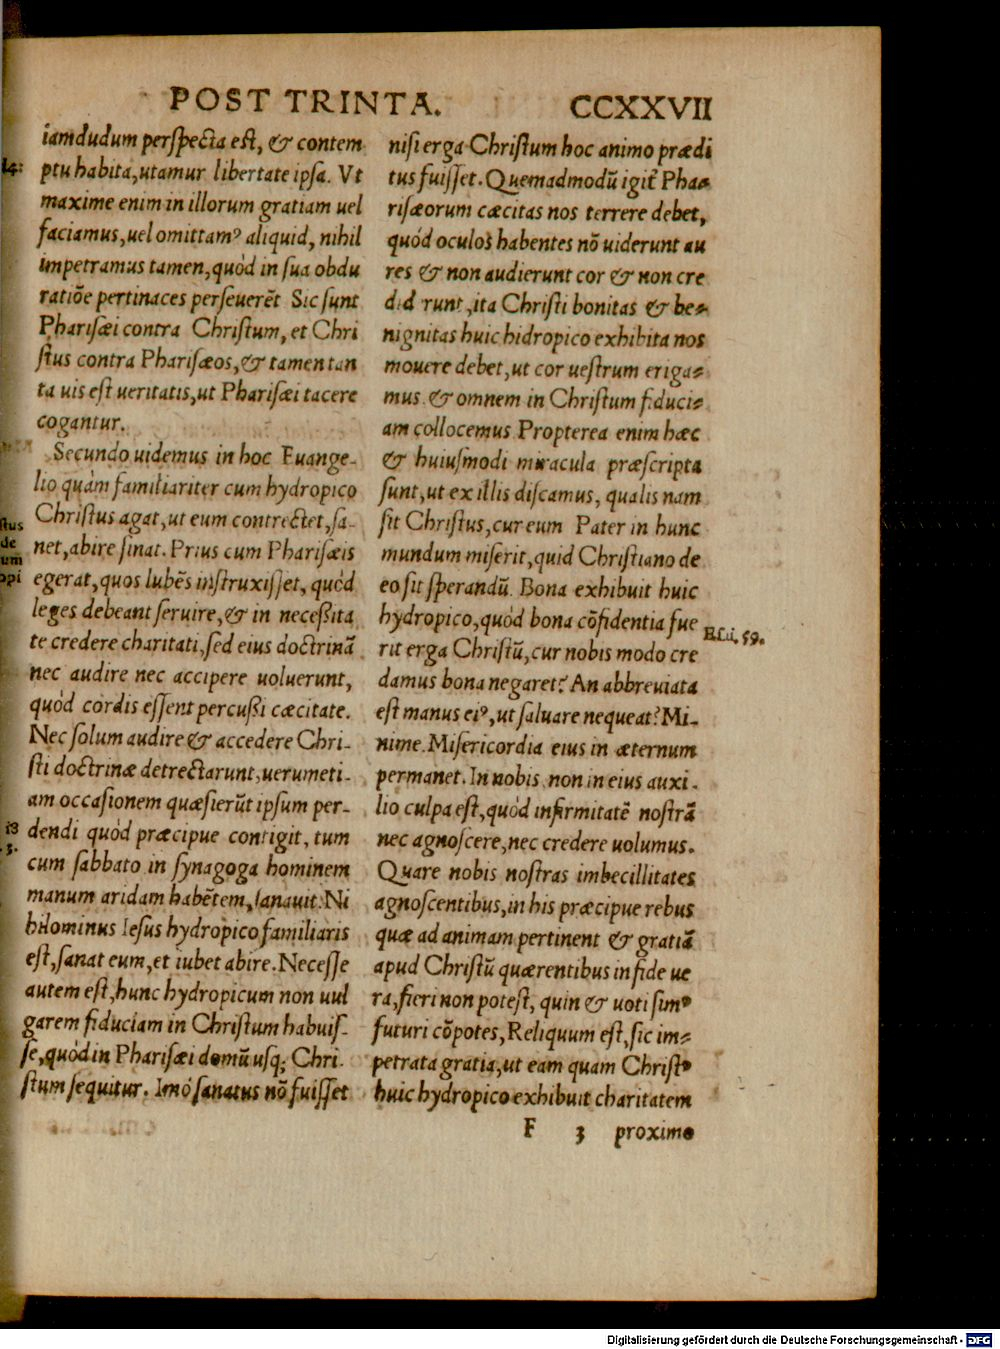 POST TRINTA. CCXXVII
iamdudum perspecta est, & contem
ptu habita, utamur libertate ipsa. Vt
maxime enim in illorum gratiam uel
faciamus, uel omittamꝰ aliquid, nihil
impetramus tamen, quòd in sua obdu
ratiõe pertinaces perseuerẽt Sic sunt
Pharisæi contra Christum, et Chri
stus contra Pharisæos, & tamen tan
ta uis est ueritatis, ut Pharisæi tacere
cogantur.
Secundo uidemus in hoc Euange-
lio quàm familiariter cum hydropico
Christus agat, ut eum contrectet, sa-
net, abire sinat. Prius cum Pharisæis
egerat, quos lubẽs instruxisset, quòd
leges debeant seruire, & in necessita
te credere charitati, sed eius doctrinã
nec audire nec accipere uoluerunt,
quòd cordis essent percussi cæcitate.
Nec solum audire & accedere Chri-
sti doctrinæ detrectarunt, uerumeti-
am occasionem quæsierũt ipsum per-
dendi quòd præcipue contigit, tum
cum sabbato in synagoga hominem
manum aridam habẽtem, sanauit. Ni
hilominus Iesus hydropico familiaris
est, sanat eum, et iubet abire. Necesse
autem est, hunc hydropicum non uul
garem fiduciam in Christum habuis-
se, quòd in Pharisæi domũ usq; Chri-
stum sequitur. Imò sanatus nõ fuisset
nisi erga Christum hoc animo prædi
tus fuisset. Quemadmodũ igit᷑ Pha-
risæorum cæcitas nos terrere debet,
quòd oculos habentes nõ uiderunt au
res & non audierunt cor & non cre
did runt, ita Christi bonitas & be-
nignitas huic hidropico exhibita nos
mouere debet, ut cor uestrum eriga-
mus & omnem in Christum fiduci-
am collocemus Propterea enim hæc
& huiusmodi miracula præscripta
sunt, ut ex illis discamus, qualis nam
sit Christus, cur eum Pater in hunc
mundum miserit, quid Christiano de
eo sit sperandũ. Bona exhibuit huic
hydropico, quòd bona cõfidentia fue
rit erga Christũ, cur nobis modo cre
damus bona negaret? An abbreuiata
est manus eiꝰ, ut saluare nequeat? Mi-
nime. Misericordia eius in æternum
permanet. In nobis non in eius auxi-
lio culpa est, quòd infirmitatẽ nostrã
nec agnoscere, nec credere uolumus.
Quare nobis nostras imbecillitates
agnoscentibus, in his præcipue rebus
quæ ad animam pertinent & gratiã
apud Christũ quærentibus in fide ue
ra, fieri non potest, quin & uoti simꝰ
futuri cõpotes, Reliquum est, sic im-
petrata gratia, ut eam quam Christꝰ
huic hydropico exhibuit charitatem
Esai. 59.
F 3 proximo
14:
stus
de
um
opi
i3
.3.
Digitalisierung gefördert durch die Deutsche Forschungsgemeinschaft - DFG